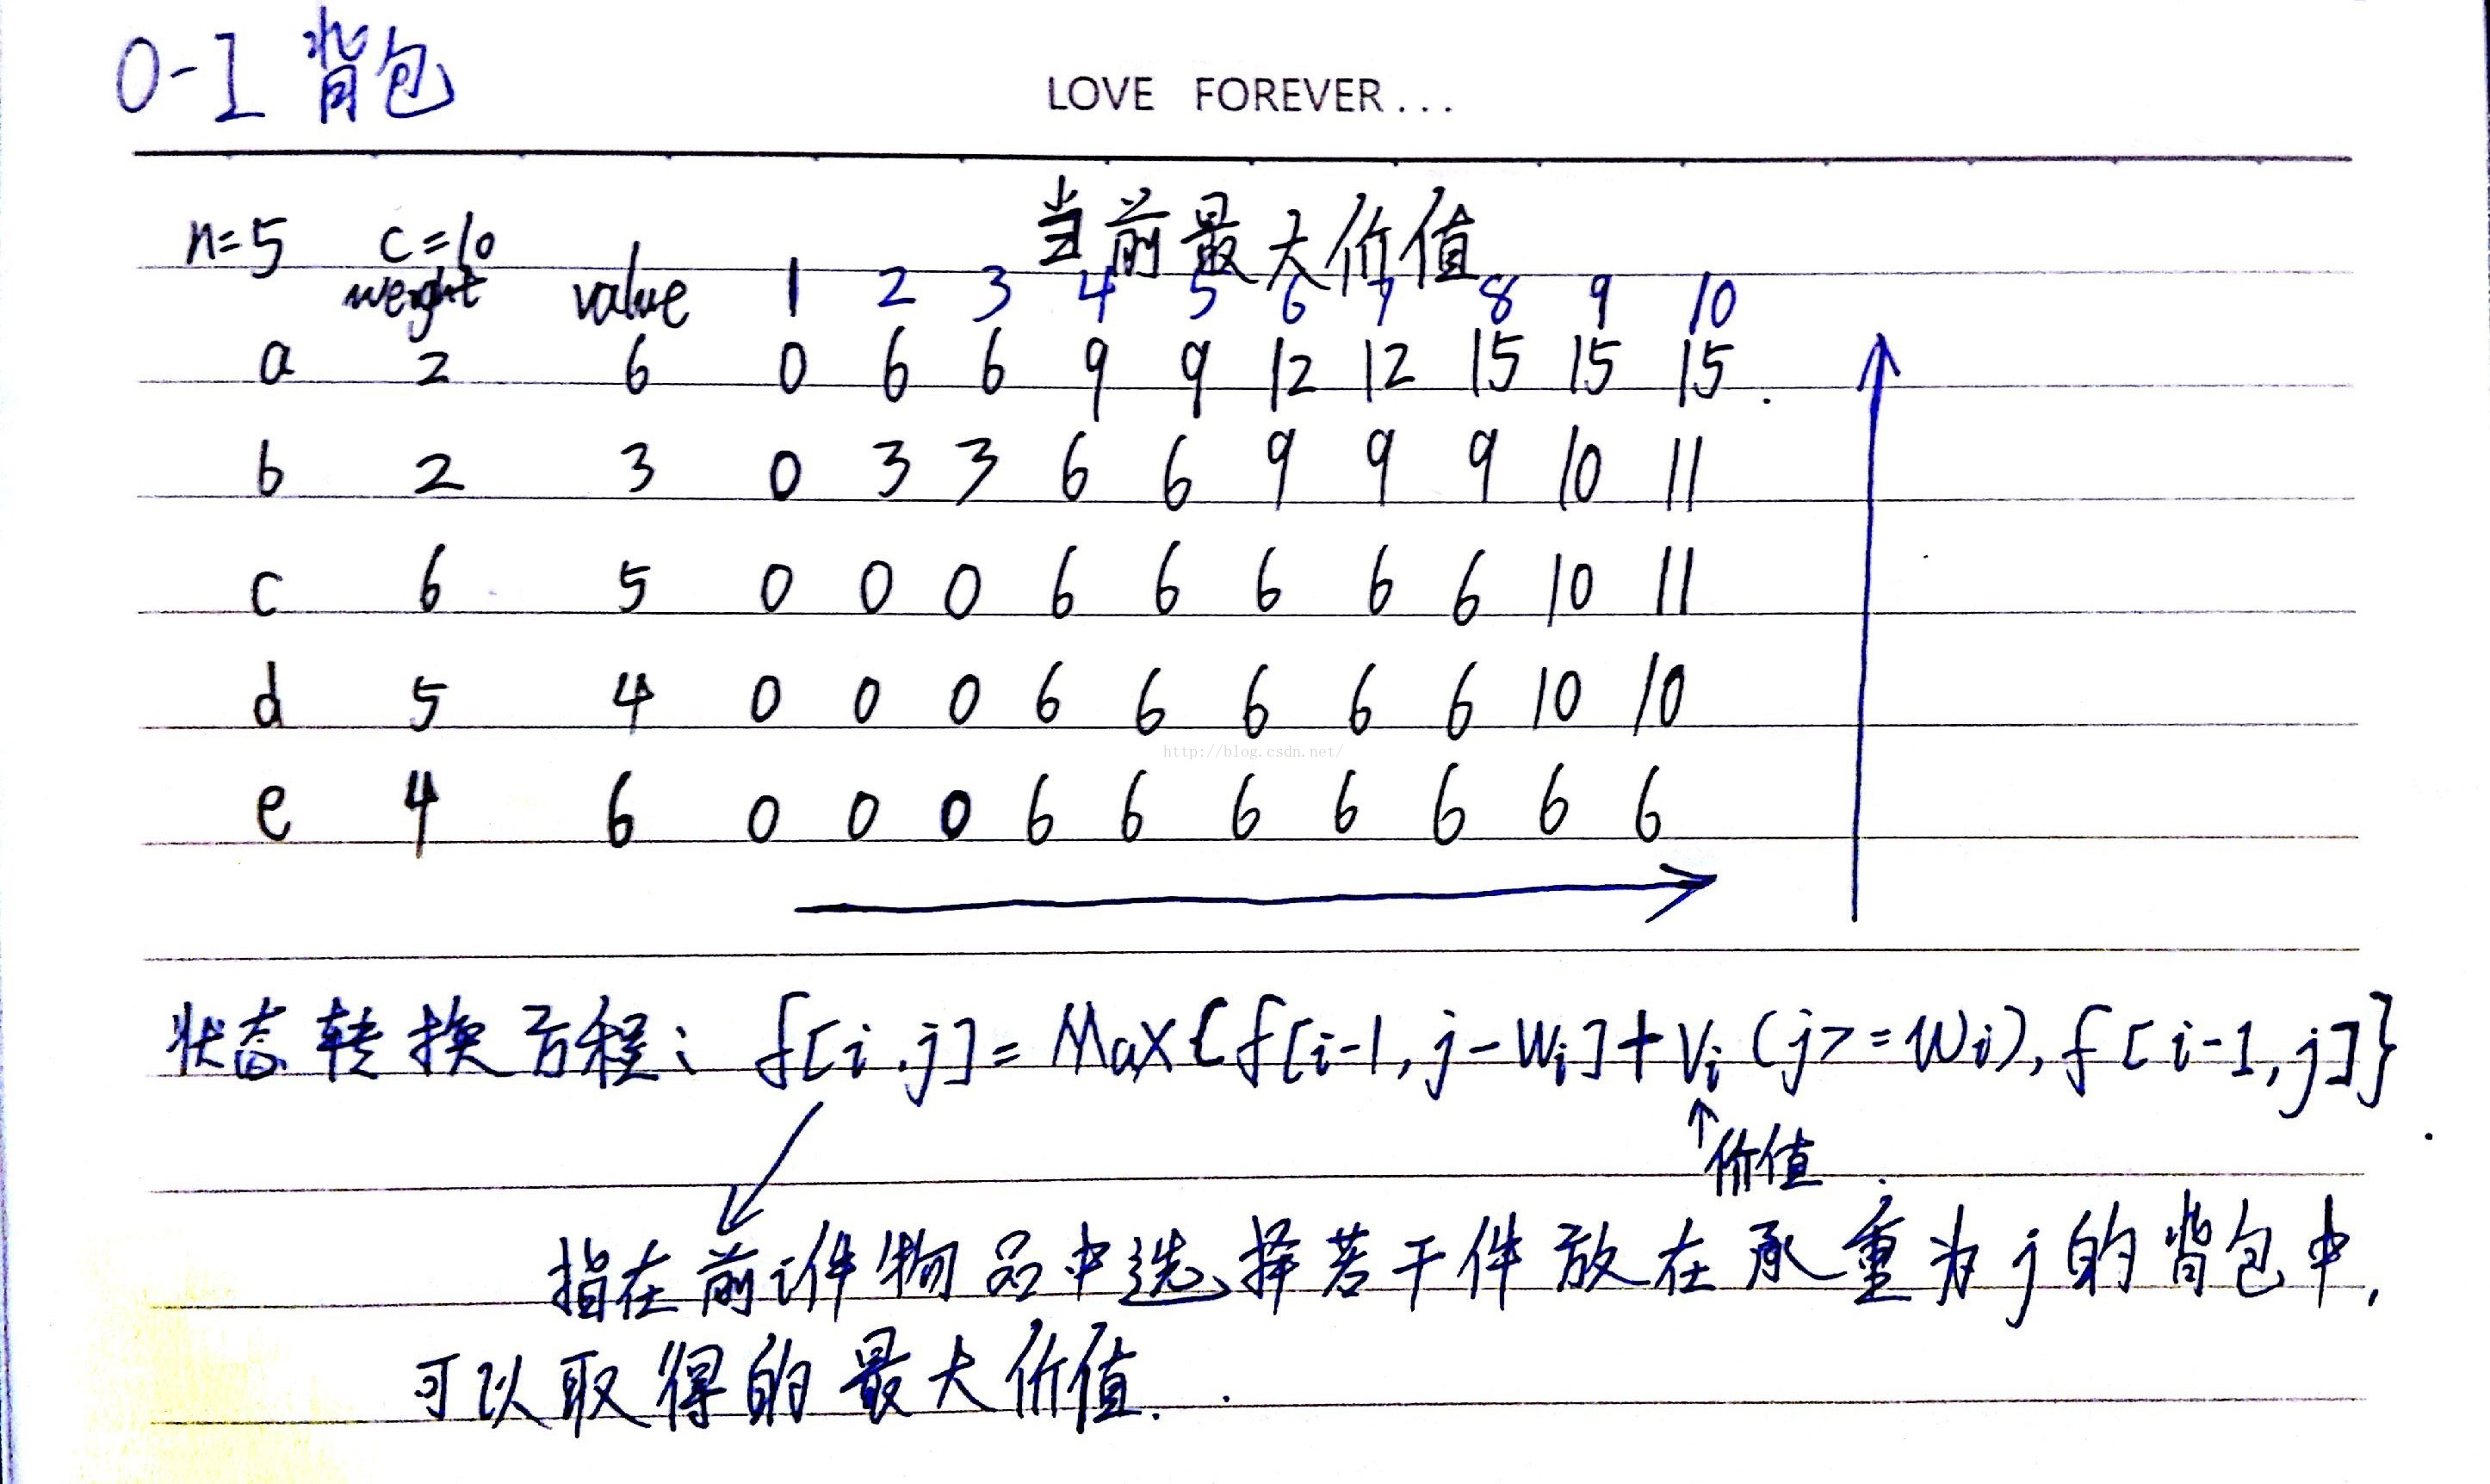 0-1 背包
LOVE FOREVER...
当前最大价值
n=5 c=10
weight value 1 2 3 4 5 6 7 8 9 10
a 2 6 0 6 6 9 9 12 12 15 15 15
b 2 3 0 3 3 6 6 9 9 9 10 11
c 6 5 0 0 0 6 6 6 6 6 10 11
d 5 4 0 0 0 6 6 6 6 6 10 10
http://blog.csdn.net/
e 4 6 0 0 0 6 6 6 6 6 6 6
状态转换方程: f[i,j]= Max{f[i-1, j-Wi]+Vi (j>=Wi), f[i-1, j]}
价值
指在前i件物品中选择若干件放在承重为j的背包中,
可以取得的最大价值.